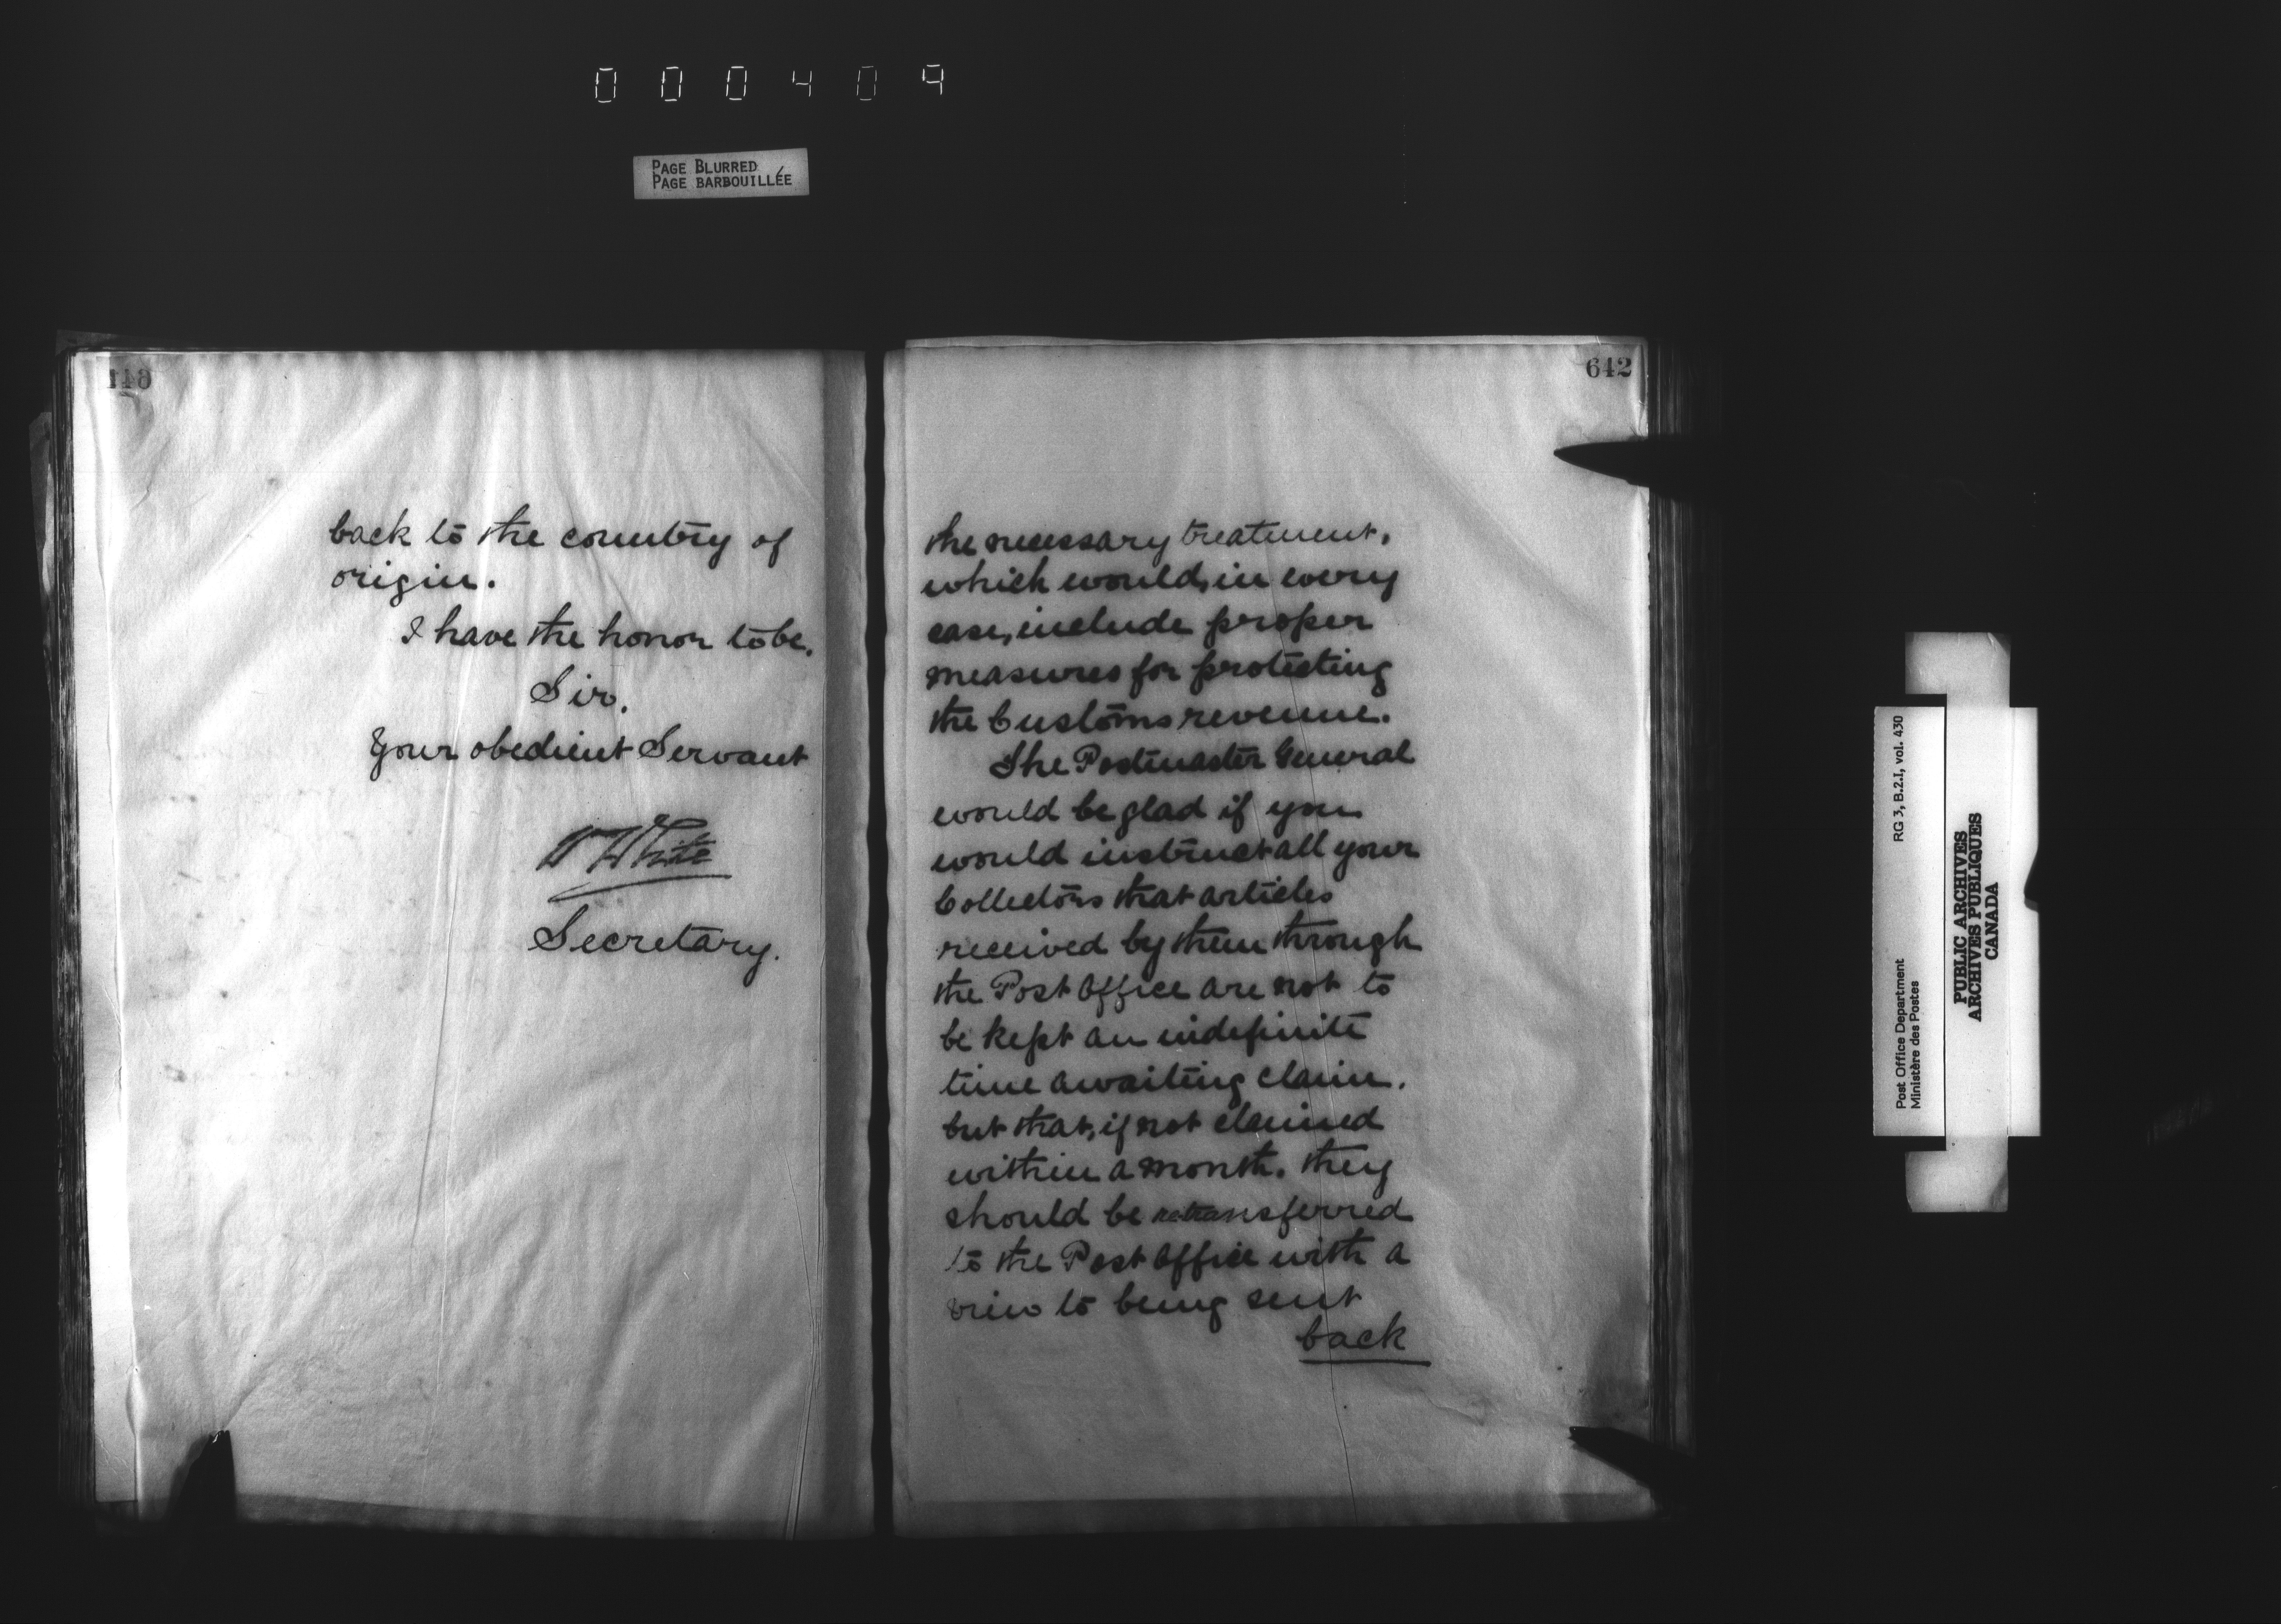 000409
PAGE BLURRED
PAGE BARBOUILLÉE
back to the country of
origin.
I have the honor to be,
Sir,
Your obedient Servant
W White
Secretary.
642
the necessary treatment,
which would, in every
case, include proper
measures for protecting
the Customs revenue.
The Postmaster General
would be glad if you
would instruct all your
Collectors that articles
received by them through
the Post Office are not to
be kept an indefinite
time awaiting claim,
but that, if not claimed
within a month, they
should be retransferred
to the Post Office with a
view to being sent
back
Post Office Department
Ministère des Postes
RG 3, B.2.I, vol. 430
PUBLIC ARCHIVES
ARCHIVES PUBLIQUES
CANADA